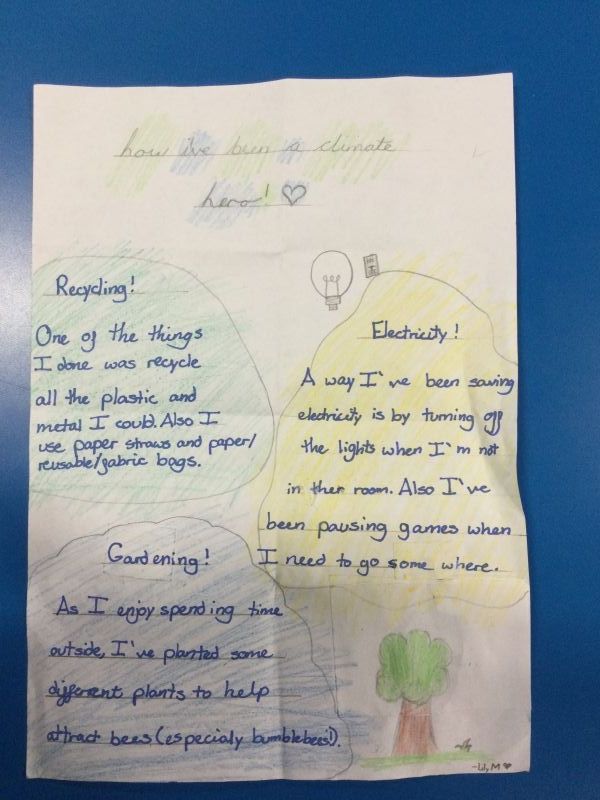 how i've been a climate
hero!
Recycling!
One of the things
I done was recycle
all the plastic and
metal I could. Also I
use paper straws and paper/
reusable/fabric bags.
Electricity!
A way I've been saving
electricity is by turning off
the lights when I'm not
in ther room. Also I've
been pausing games when
I need to go some where.
Gardening!
As I enjoy spending time
outside, I've planted some
different plants to help
attract bees (especialy bumblebees!).
~Lily M